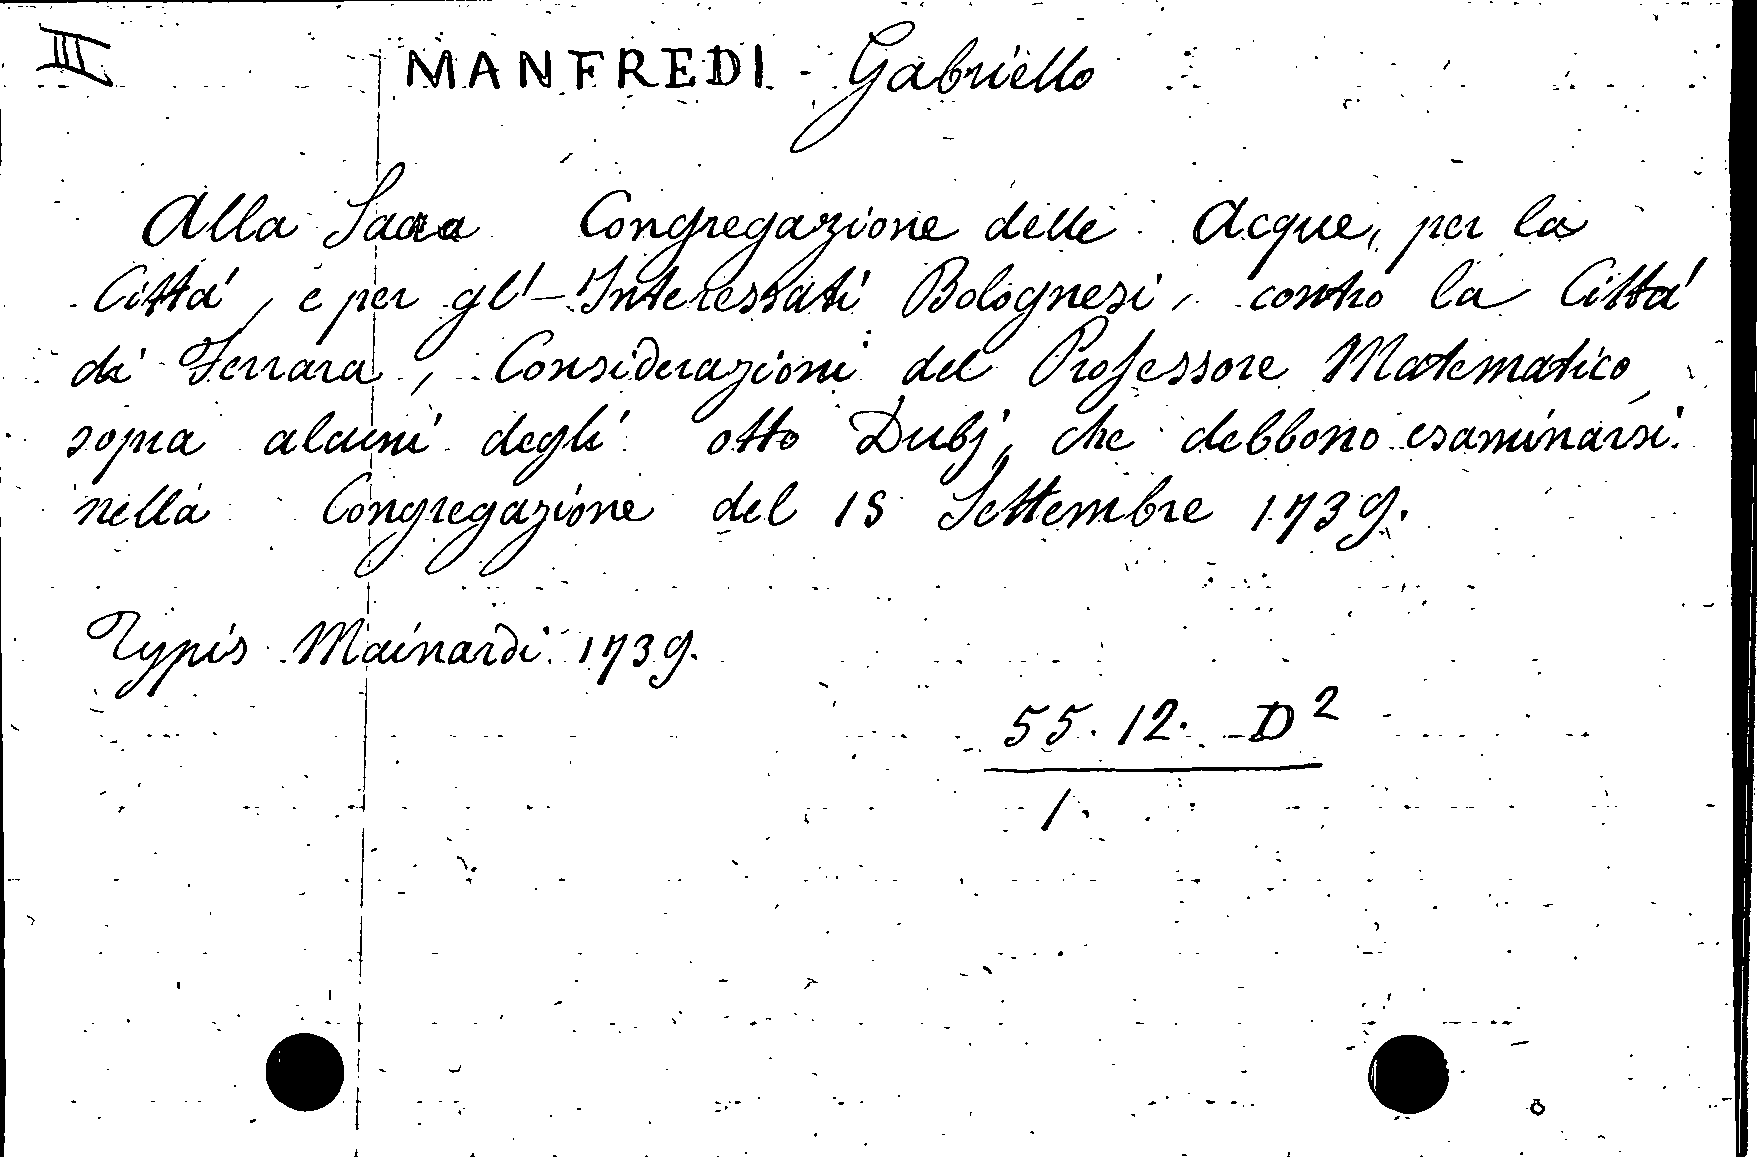 III
MANFREDI Gabriello
Alla Sacra Congregazione delle Acque, per la
Cittá, e per gl'-Interessati Bolognesi, contro la Cittá
di Ferrara, Considerazioni del Professore Matematico,
sopra alcuni degli otto Dubj, che debbono esaminarsi
nella Congregazione del 15 Settembre 1739.
Typis Mainardi 1739.
55. 12. D²
1.